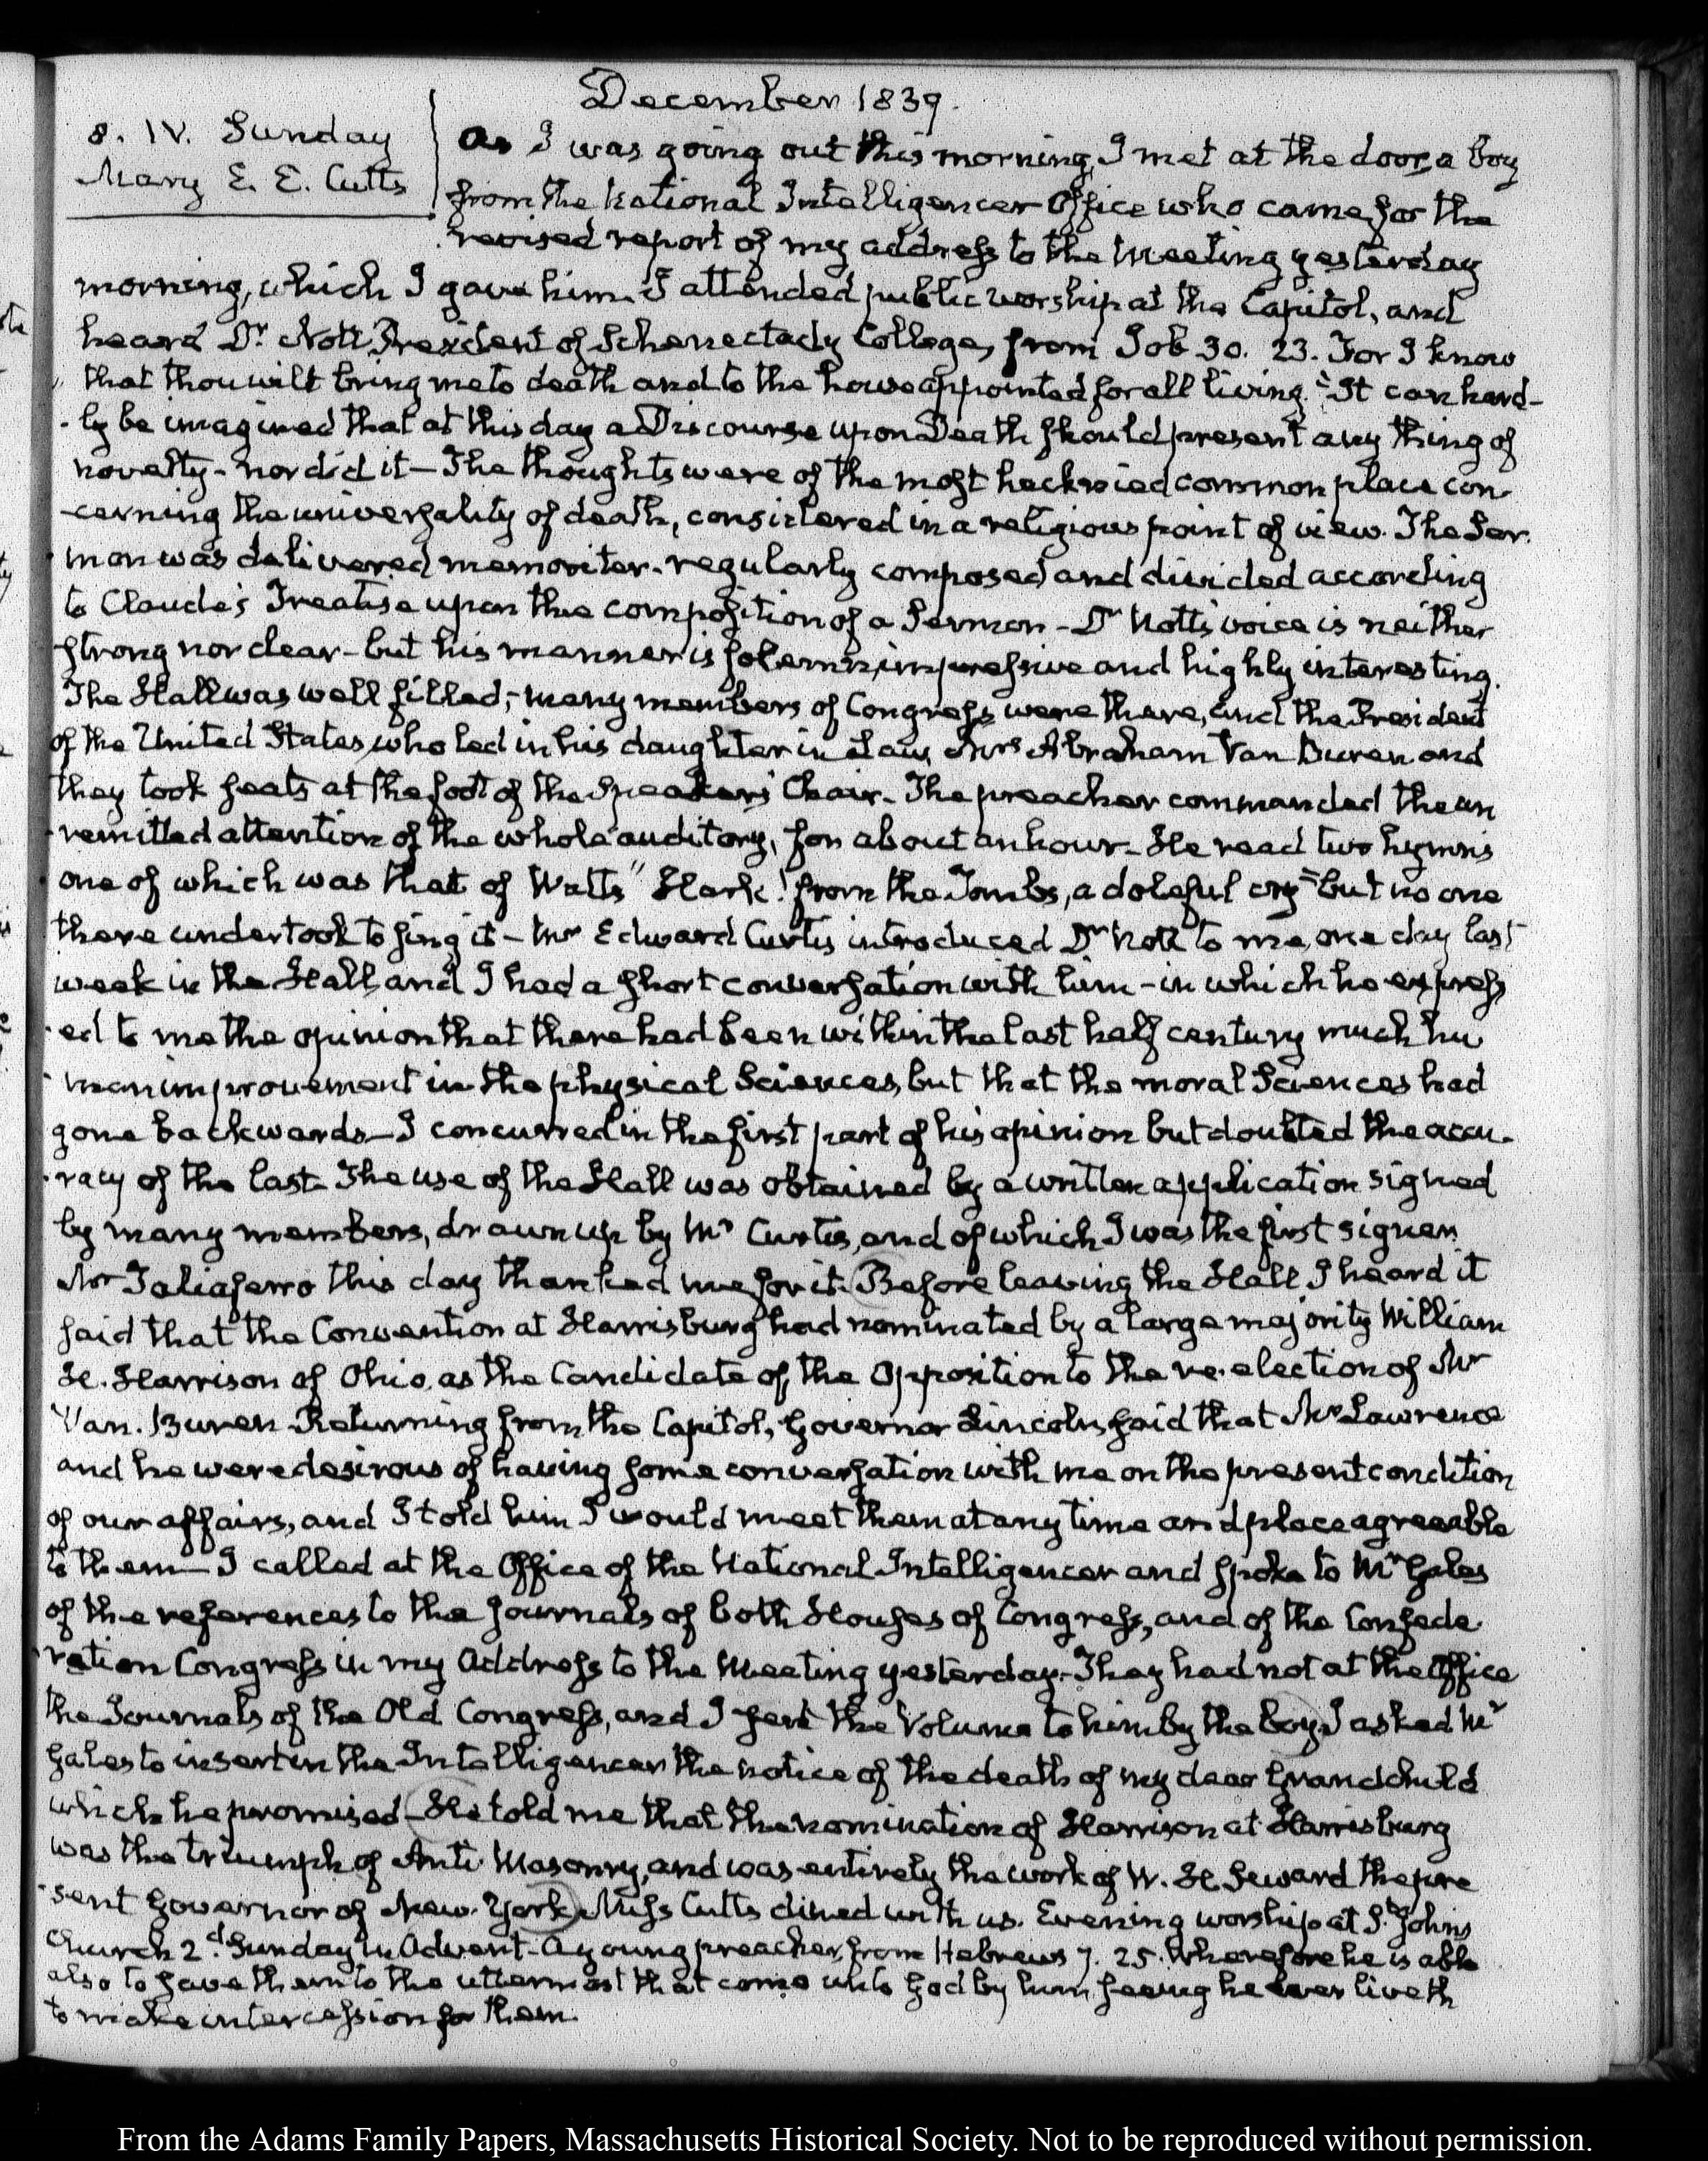 December 1839.
8. IV. Sunday
Mary E. E. Cutts
As I was going out this morning, I met at the door, a boy
from the National Intelligencer Office who came for the
revised report of my address to the Meeting yesterday
morning, which I gave him. I attended public worship at the Capitol, and
heard Dr. Nott President of Schenectady College, from Job 30. 23. For I know
that thou wilt bring me to death and to the house appointed for all living." It can hard-
-ly be imagined that at this day a Discourse upon Death should present any thing of
novelty - nor did it - The thoughts were of the most hackneied common place con-
-cerning the universality of death, considered in a religious point of view. The Ser-
mon was delivered memoriter - regularly composed and divided according
to Claude's Treatise upon the composition of a Sermon - Dr Nott's voice is neither
strong nor clear - but his manner is solemn, impressive and highly interesting.
The Hall was well filled; many members of Congress were there, and the President
of the United States, who led in his daughter in Law, Mrs Abraham Van Buren and
they took seats at the foot of the Speakers' Chair - The preacher commanded the un
-remitted attention of the whole auditory, for about an hour - He read two hymns
one of which was that of Watts "Hark! from the Tombs, a doleful cry" but no one
there undertook to sing it - Mr Edward Curtis introduced Dr Nott to me, one day last
week in the Hall, and I had a short conversation with him - in which he express
-ed to me the opinion that there had been within the last half century much hu
-man improvement in the physical Sciences, but that the moral Sciences had
gone backwards - I concurred in the first part of his opinion but doubted the accu-
-racy of the last. The use of the Hall was obtained by a written application signed
by many members, drawn up by Mr Curtis, and of which I was the first signer.
Mr Taliaferro this day thanked me for it. Before leaving the Hall I heard it
said that the Convention at Harrisburg had nominated by a large majority William
H. Harrison of Ohio, as the Candidate of the Opposition to the re-election of Mr
Van. Buren. Returning from the Capitol, Governor Lincoln said that Mr Lawrence
and he were desirous of having some conversation with me on the present condition
of our affairs, and I told him I would meet them at any time and place agreeable
to them - I called at the Office of the National Intelligencer and spoke to Mr Gales
of the references to the Journals of both Houses of Congress, and of the Confede
-ration Congress in my Address to the Meeting yesterday. They had not at the Office
the Journals of the Old Congress, and I sent the Volume to him by the boy. I asked Mr
Gales to insert in the Intelligencer the notice of the death of my dear Grandchild
which he promised - He told me that the nomination of Harrison at Harrisburg
was the triumph of Anti Masonry, and was entirely the work of W. H. Seward the pre
-sent Governor of New. York. Miss Cutts dined with us. Evening worship at St. Johns
Church 2d. Sunday in Advent. A young preacher, from Hebrews 7. 25. Wherefore he is able
also to save them to the uttermost that come unto God by him, seeing he ever liveth
to make intercession for them.
From the Adams Family Papers, Massachusetts Historical Society. Not to be reproduced without permission.